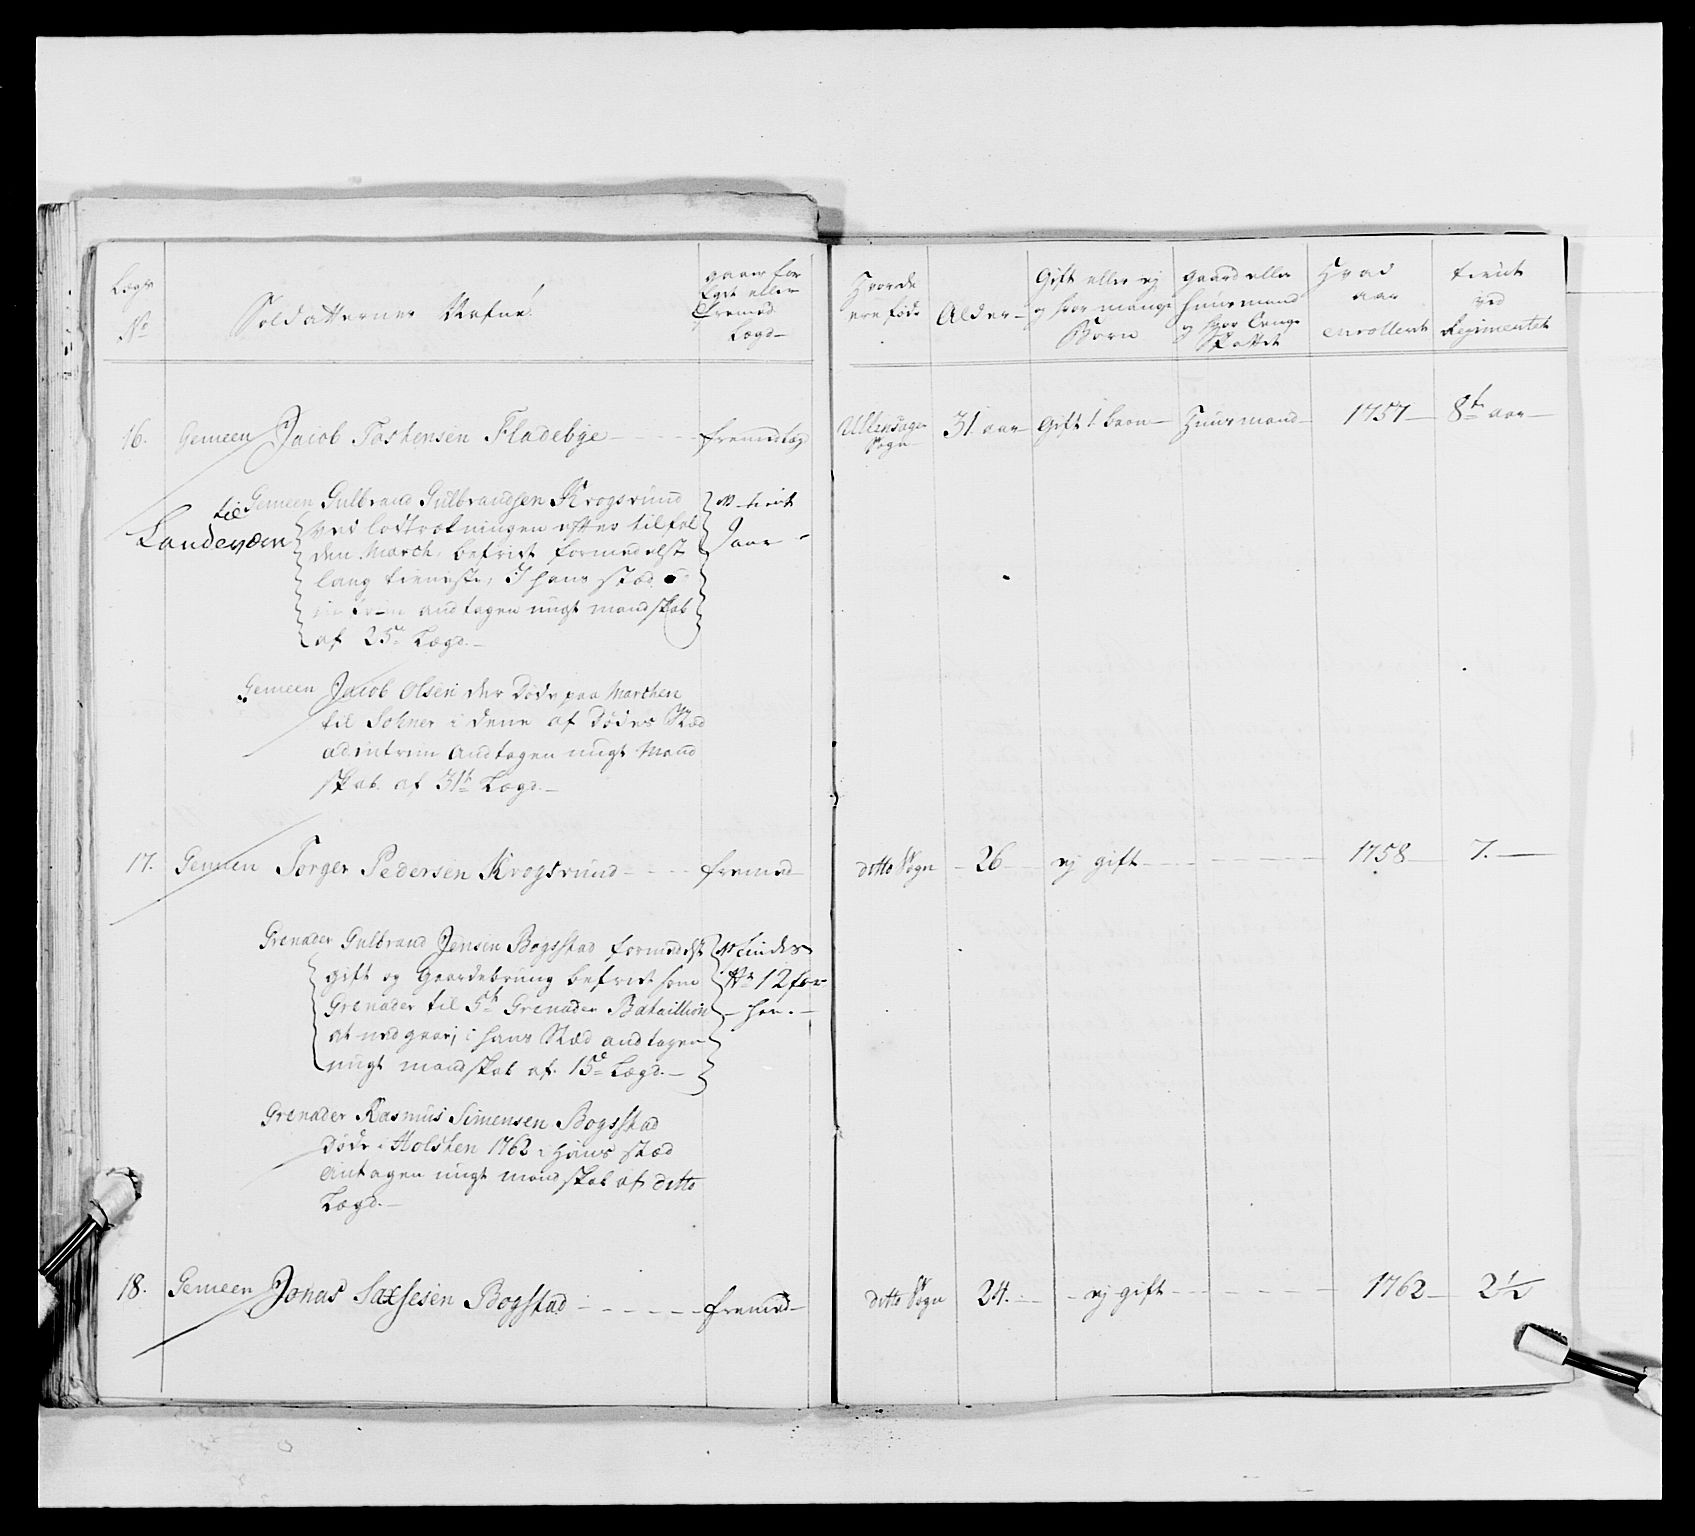 Lægs
No
Soldatternes Nafne
gaaer for
Eget eller
fremd
Lægd
Hvorde
ere føde
Alder
Gift eller ej
og hvor mange
Børn
gaard eller
huusmand
og hvor længe
Skattet
Hvad
aar
enrolleret
tient
ved
Regimentet
16. Gemeen Jacob Tostensen Fladebye fremd læg Ullensager 31 aar gift 1 barn Huusmand 1757 8t aar
Sogn
til
Landeværn
Gemeen Gulbrand Gulbrandsen Krogsrund
ved lodtrækningen efter tilfal
den March, befriet formedelst
lang tieneste, I hans stæd
andtagen nügt mandskab
af 25de Lægd.
tient
9 aar
Gemeen Jacob Olsen der døde paa Marchen
til Solner i dene af dødes Stæd
adintrim Andtagen nügt Mand
skab af 31te Lægd.
17. Gemeen Torger Pedersen Krogsrund fremed ditto Sogn 26 ej gift 1758 7.
Grenader Gulbrand Jensen Bogsstad formedelst
gift og Gaardebrüng befriet som
Grenader til 5te Grenader Bataillion
at med gaae, i hans Stæd andtagen
nügt mandskab af 15de Lægd.
findes
No 12 for
hen.
Grenader Rasmus Simensen Bogsstad
døde i Holsten 1762 i Hans stæd
Antagen nügt mandskab af ditto
Lægd.
18. Gemeen Jonas Saxsesen Bogstad fremed ditto Sogn 24. ej gift 1762 2 1/2